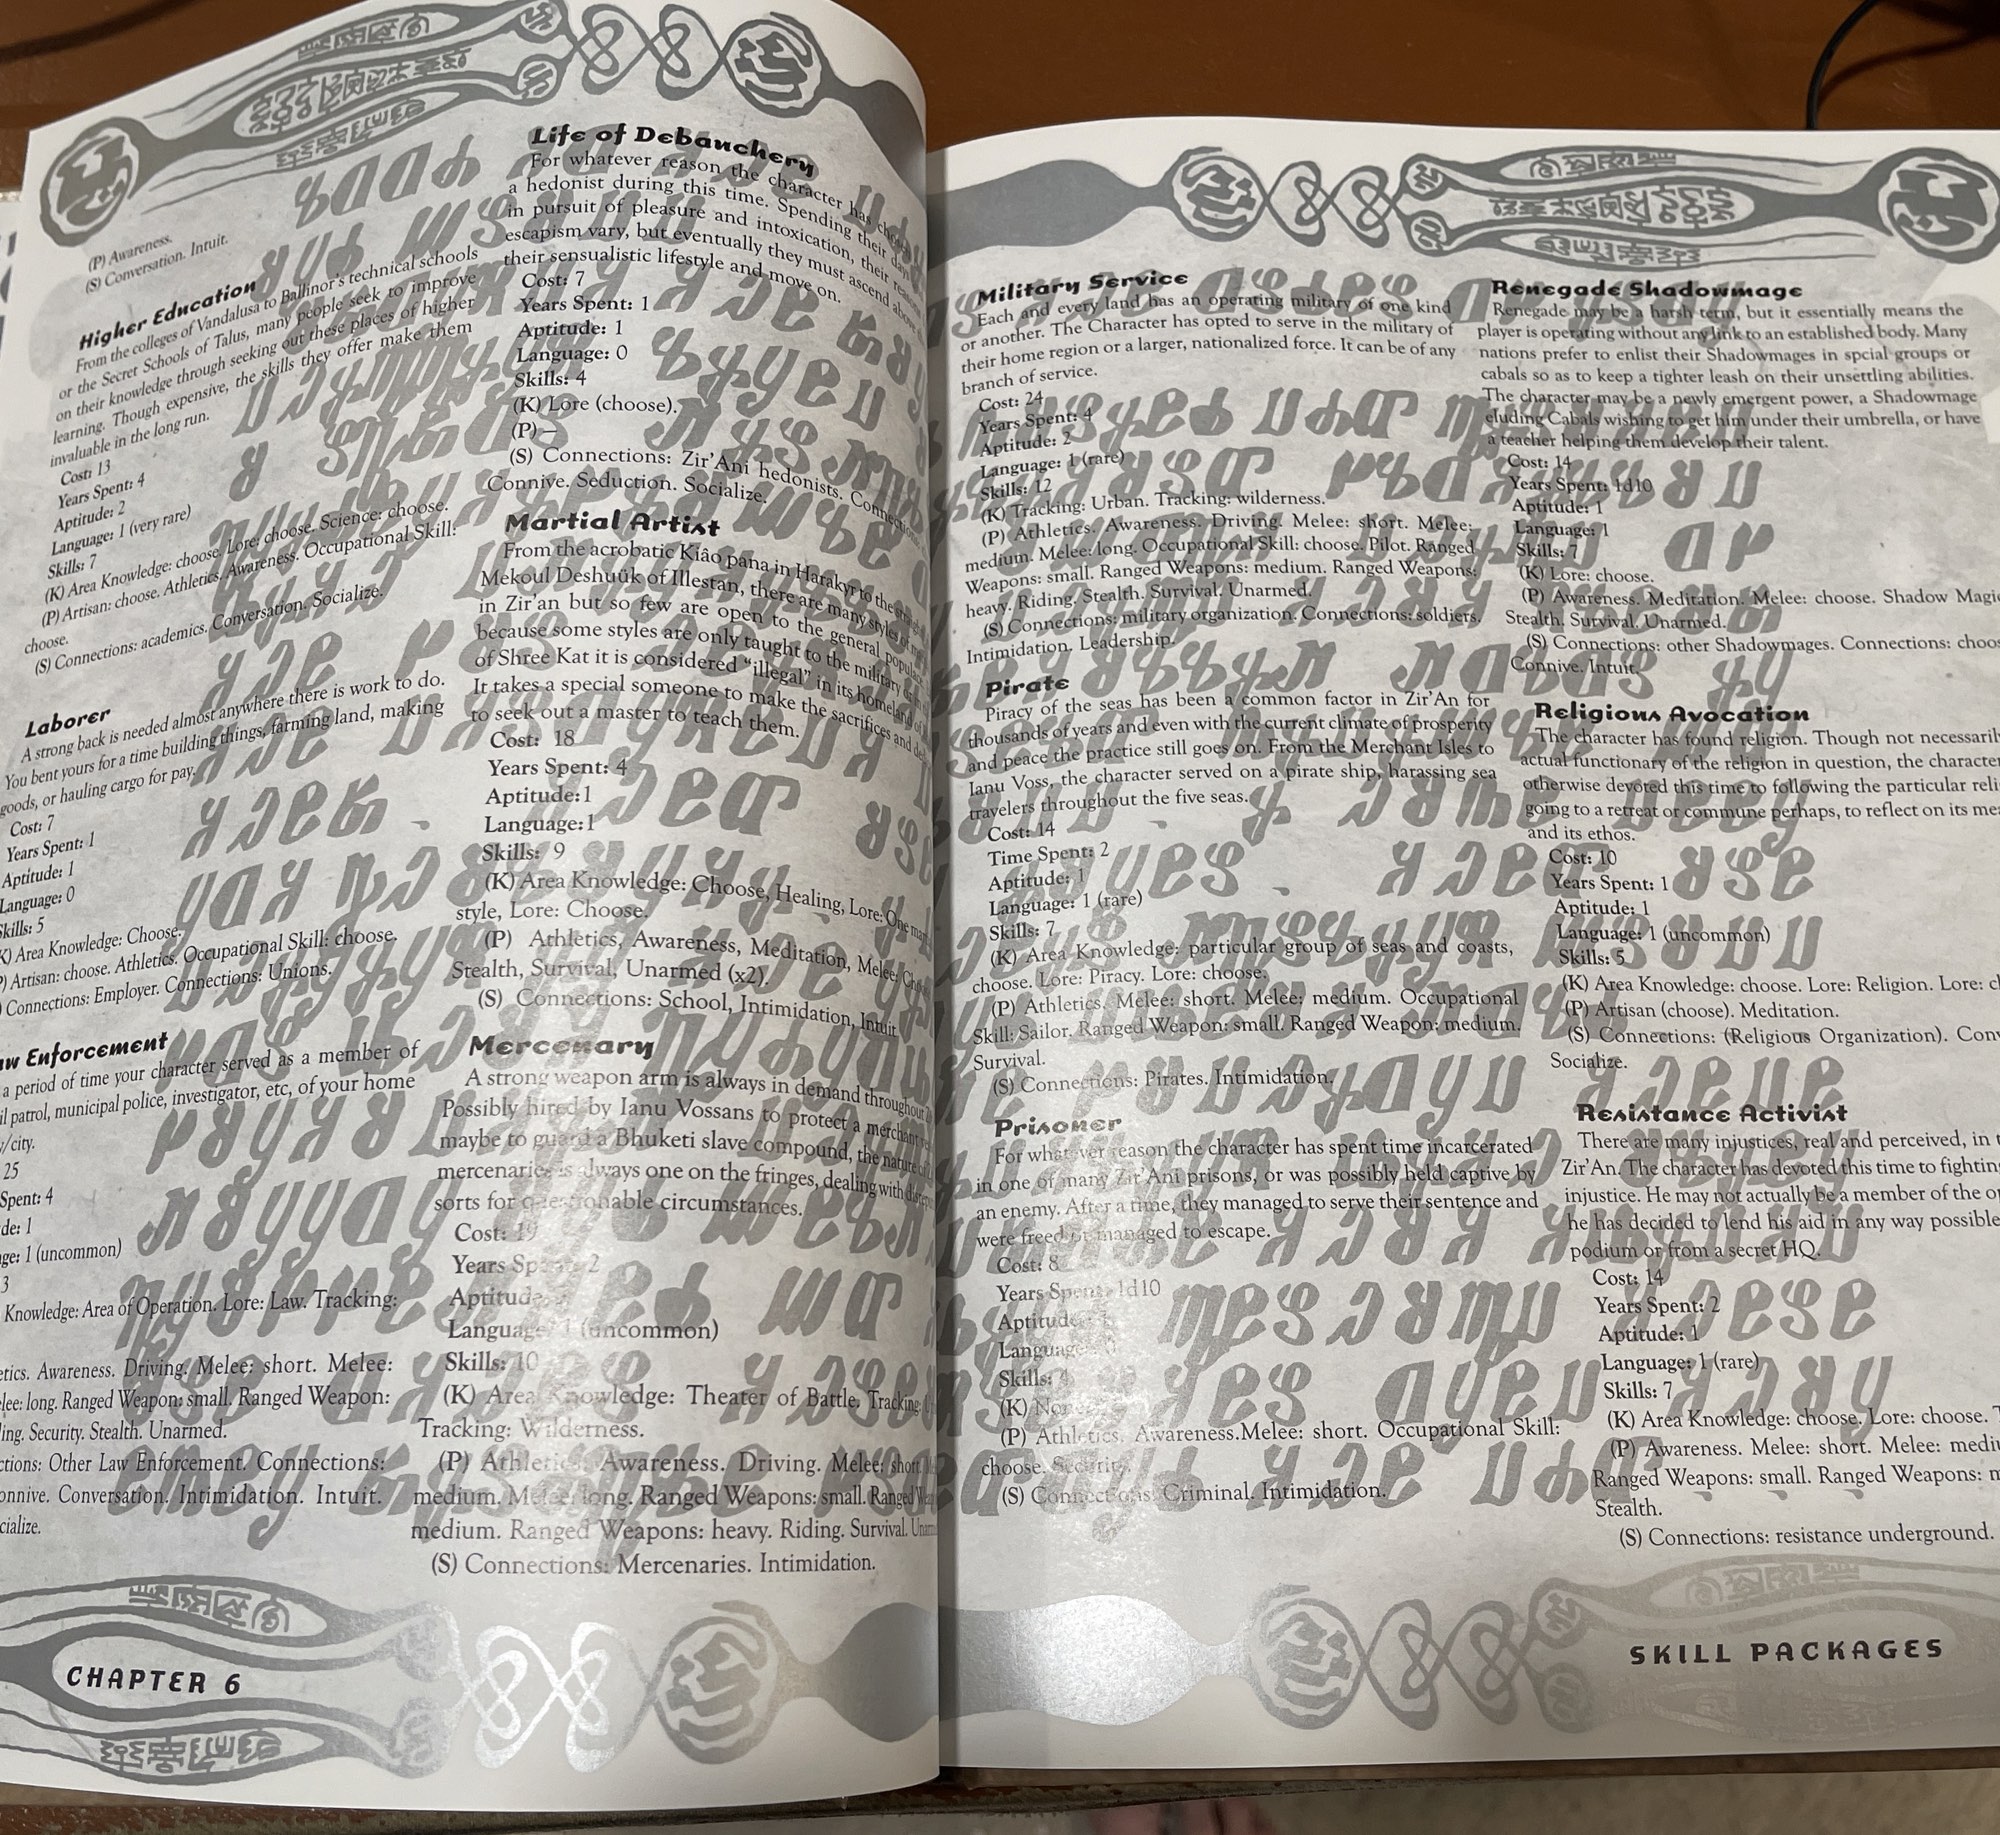 (P) Awareness.
(S) Conversation. Intuit.
Higher Education
From the colleges of Vandalusa to Ballinor's technical schools
or the Secret Schools of Talus, many people seek to improve
on their knowledge through seeking out these places of higher
learning. Though expensive, the skills they offer make them
invaluable in the long run.
Cost: 13
Years Spent: 4
Aptitude: 2
Language: 1 (very rare)
Skills: 7
(K) Area Knowledge: choose. Lore: choose. Science: choose.
(P) Artisan: choose. Athletics. Awareness. Occupational Skill:
choose.
(S) Connections: academics. Conversation. Socialize.
Laborer
A strong back is needed almost anywhere there is work to do.
You bent yours for a time building things, farming land, making
goods, or hauling cargo for pay.
Cost: 7
Years Spent: 1
Aptitude: 1
Language: 0
Skills: 5
K) Area Knowledge: Choose.
P) Artisan: choose. Athletics. Occupational Skill: choose.
) Connections: Employer. Connections: Unions.
aw Enforcement
a period of time your character served as a member of
il patrol, municipal police, investigator, etc, of your home
y/city.
25
Spent: 4
de: 1
ge: 1 (uncommon)
3
Knowledge: Area of Operation. Lore: Law. Tracking:
etics. Awareness. Driving. Melee: short. Melee:
lee: long. Ranged Weapon: small. Ranged Weapon:
ing. Security. Stealth. Unarmed.
ctions: Other Law Enforcement. Connections:
onnive. Conversation. Intimidation. Intuit.
cialize.
Life of Debauchery
For whatever reason the character has
a hedonist during this time. Spending their days
in pursuit of pleasure and intoxication, their reasons
escapism vary, but eventually they must ascend above
their sensualistic lifestyle and move on.
Cost: 7
Years Spent: 1
Aptitude: 1
Language: 0
Skills: 4
(K) Lore (choose).
(P) –
(S) Connections: Zir'Ani hedonists. Connections
Connive. Seduction. Socialize.
Martial Artist
From the acrobatic Kiâo pana in Harakyr to the
Mekoul Deshuük of Illestan, there are many styles of
in Zir'an but so few are open to the general
because some styles are only taught to the military
of Shree Kat it is considered "illegal" in its homeland of
It takes a special someone to make the sacrifices and
to seek out a master to teach them.
Cost: 18
Years Spent: 4
Aptitude:1
Language:1
Skills: 9
(K) Area Knowledge: Choose, Healing, Lore: One
style, Lore: Choose.
(P) Athletics, Awareness, Meditation, Melee:
Stealth, Survival, Unarmed (x2).
(S) Connections: School, Intimidation, Intuit.
Mercenary
A strong weapon arm is always in demand throughout
Possibly hired by Ianu Vossans to protect a merchant
maybe to guard a Bhuketi slave compound, the nature of
mercenaries is always one on the fringes, dealing with
sorts for questionable circumstances.
Cost: 19
Years Spent: 2
Aptitude:
Language: 1 (uncommon)
Skills: 10
(K) Area Knowledge: Theater of Battle. Tracking:
Tracking: Wilderness.
(P) Athletics. Awareness. Driving. Melee: short.
medium. Melee: long. Ranged Weapons: small. Ranged
medium. Ranged Weapons: heavy. Riding. Survival.
(S) Connections: Mercenaries. Intimidation.
CHAPTER 6
Military Service
Each and every land has an operating military of one kind
or another. The Character has opted to serve in the military of
their home region or a larger, nationalized force. It can be of any
branch of service.
Cost: 24
Years Spent: 4
Aptitude: 2
Language: 1 (rare)
Skills: 12
(K) Tracking: Urban. Tracking: wilderness.
(P) Athletics. Awareness. Driving. Melee: short. Melee:
medium. Melee: long. Occupational Skill: choose. Pilot. Ranged
Weapons: small. Ranged Weapons: medium. Ranged Weapons:
heavy. Riding. Stealth. Survival. Unarmed.
(S) Connections: military organization. Connections: soldiers.
Intimidation. Leadership.
Pirate
Piracy of the seas has been a common factor in Zir'An for
thousands of years and even with the current climate of prosperity
and peace the practice still goes on. From the Merchant Isles to
Ianu Voss, the character served on a pirate ship, harassing sea
travelers throughout the five seas.
Cost: 14
Time Spent: 2
Aptitude: 1
Language: 1 (rare)
Skills: 7
(K) Area Knowledge: particular group of seas and coasts,
choose. Lore: Piracy. Lore: choose.
(P) Athletics. Melee: short. Melee: medium. Occupational
Skill: Sailor. Ranged Weapon: small. Ranged Weapon: medium.
Survival.
(S) Connections: Pirates. Intimidation.
Prisoner
For whatever reason the character has spent time incarcerated
in one of many Zir'Ani prisons, or was possibly held captive by
an enemy. After a time, they managed to serve their sentence and
were freed or managed to escape.
Cost: 8
Years Spent: 1d10
Aptitude:
Language:
Skills: 4
(K)
(P) Athletics. Awareness.Melee: short. Occupational Skill:
choose. Security.
(S) Connections: Criminal. Intimidation.
Renegade Shadowmage
Renegade may be a harsh term, but it essentially means the
player is operating without any link to an established body. Many
nations prefer to enlist their Shadowmages in spcial groups or
cabals so as to keep a tighter leash on their unsettling abilities.
The character may be a newly emergent power, a Shadowmage
eluding Cabals wishing to get him under their umbrella, or have
a teacher helping them develop their talent.
Cost: 14
Years Spent: 1d10
Aptitude: 1
Language: 1
Skills: 7
(K) Lore: choose.
(P) Awareness. Meditation. Melee: choose. Shadow Magic
Stealth. Survival. Unarmed.
(S) Connections: other Shadowmages. Connections: choos
Connive. Intuit.
Religious Avocation
The character has found religion. Though not necessaril
actual functionary of the religion in question, the character
otherwise devoted this time to following the particular reli
going to a retreat or commune perhaps, to reflect on its mea
and its ethos.
Cost: 10
Years Spent: 1
Aptitude: 1
Language: 1 (uncommon)
Skills: 5
(K) Area Knowledge: choose. Lore: Religion. Lore: c
(P) Artisan (choose). Meditation.
(S) Connections: (Religious Organization). Con
Socialize.
Resistance Activist
There are many injustices, real and perceived, in t
Zir'An. The character has devoted this time to fightin
injustice. He may not actually be a member of the o
he has decided to lend his aid in any way possible
podium or from a secret HQ.
Cost: 14
Years Spent: 2
Aptitude: 1
Language: 1 (rare)
Skills: 7
(K) Area Knowledge: choose. Lore: choose. T
(P) Awareness. Melee: short. Melee: mediu
Ranged Weapons: small. Ranged Weapons: m
Stealth.
(S) Connections: resistance underground.
SKILL PACKAGES